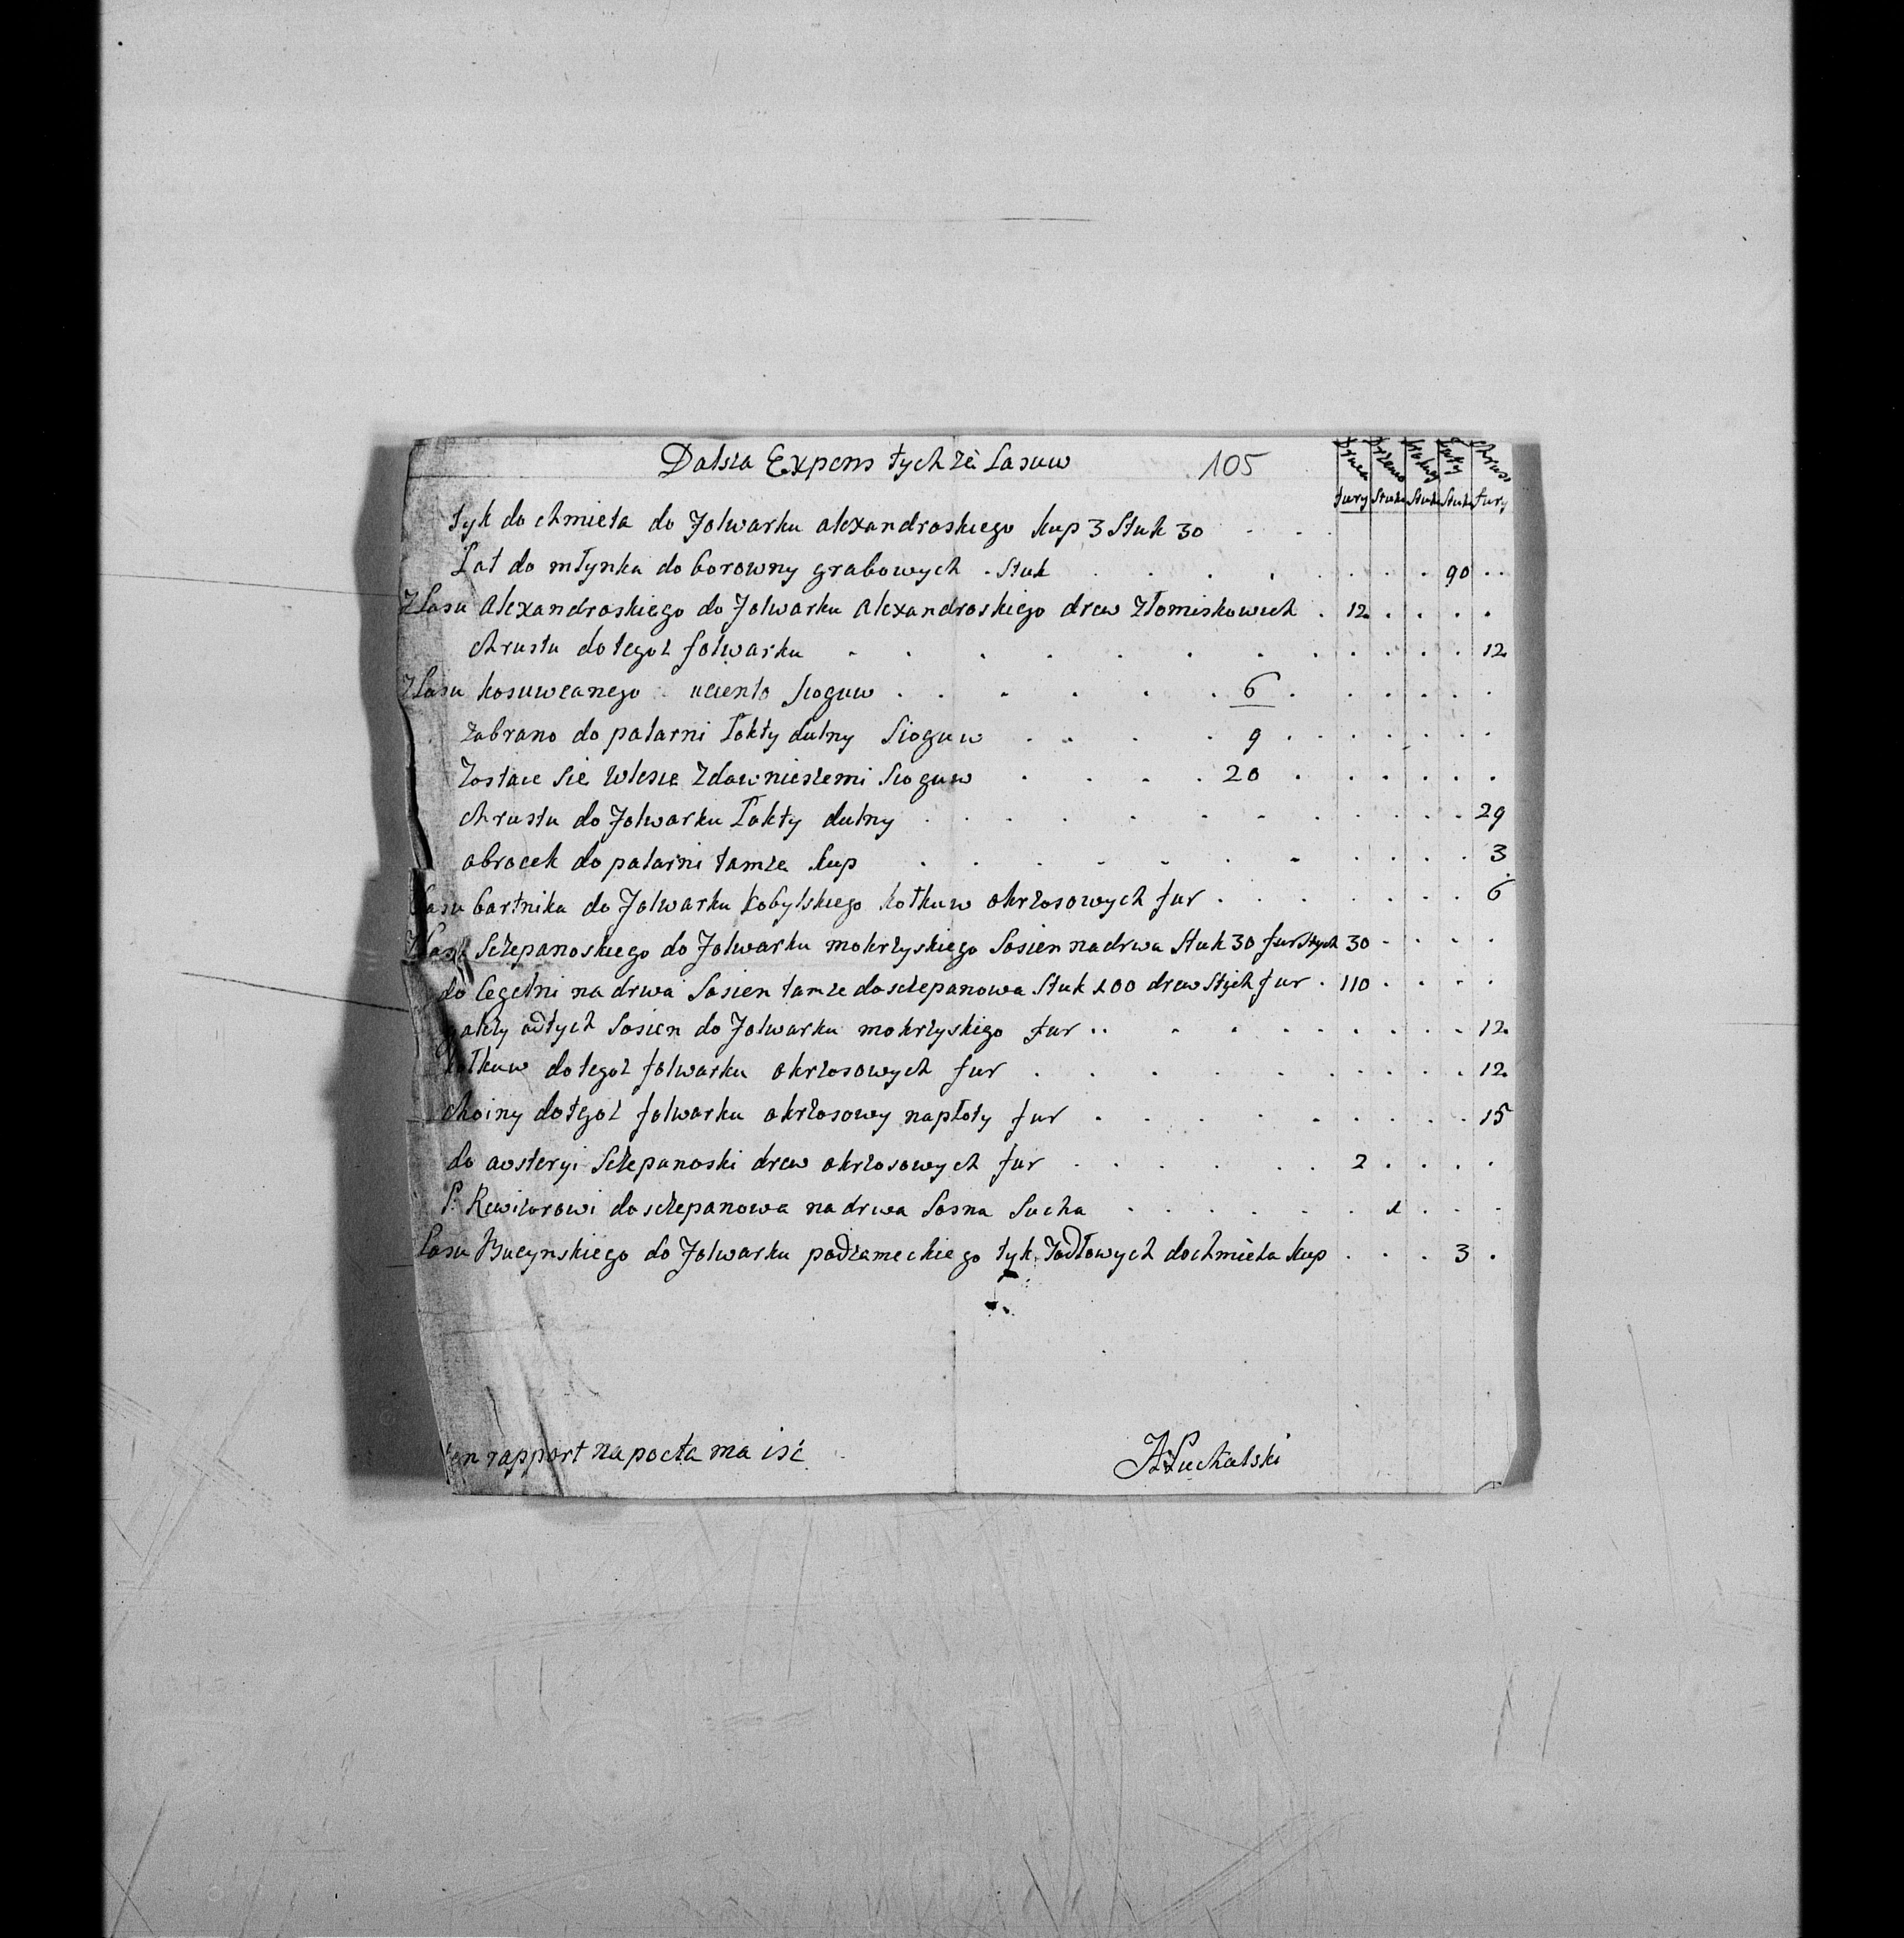 Dalsza Expens tychże Lasuw 105
Drwa Drzewa Łaty Chrust
fury Stuk Stuk Stuk fury
tyk do chmiela do folwarku alexandroskiego kup 3 Stuk 30
Lat do młynka do borowny grabowych Stuk 90
Z Lasu Alexandroskiego do folwarku Alexandroskiego drew Złomiskowych 12
chrustu do tegoż folwarku 12
Z Lasu kosuwcanego ucięnto siąguw 6
Zabrano do palarni Łokty dulny Siąguw 9
Zostaie Sie w lesie Zdawnieszemi Siąguw 20
chrustu do folwarku Łokty dulny 29
obrocek do palarni tamże kup 3
Lasu bartnika do folwarku Kobylskiego kołkuw okrzosowych fur 6
Z Lasu Sczepanoskiego do folwarku mokrzyskiego Sosien na drwa Stuk 30 fur Stych 30
do Cegelni na drwa Sosien tamże do sczepanowa Stuk 100 drew Stych fur 110
gałezy od tych Sosien do folwarku mokrzyskiego fur 12
kołkuw do tegoż folwarku okrzosowych fur 12
choiny do tegoż folwarku okrzosowy na płoty fur 15
do austeryi Sczepanoski drew okrzosowych fur 2
P. Rewizorowi do sczepanowa na drwa Sosna Sucha 1
Lasu Bucynskiego do folwarku podzameckiego tyk Jodłowych do chmiela kup 3
ten rapport na pocta ma iść
A Puchalski